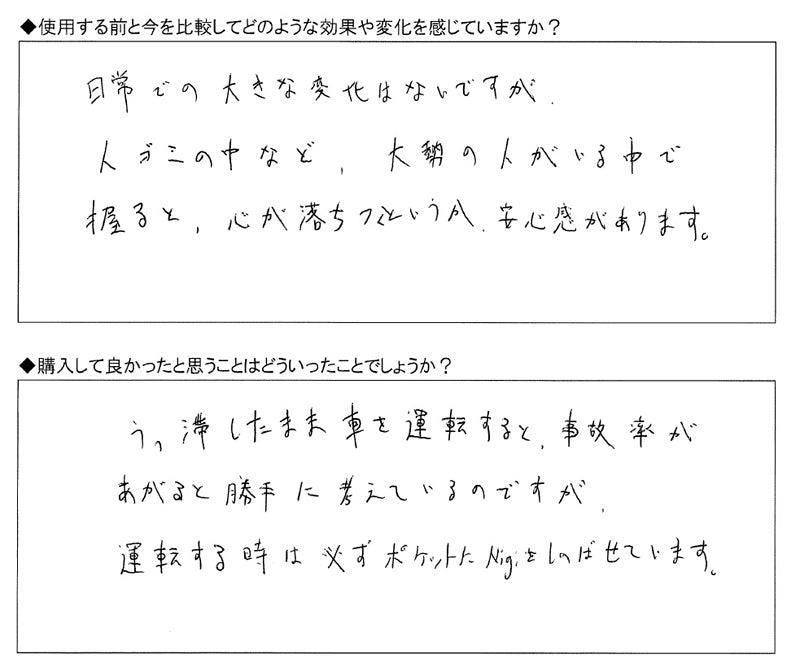 ◆使用する前と今を比較してどのような効果や変化を感じていますか？
日常での大きな変化はないですが、
人ゴミの中など、大勢の人がいる中で
握ると、心が落ちつくというか、安心感があります。
◆購入して良かったと思うことはどういったことでしょうか？
うっ滞したまま車を運転すると、事故率が
あがると勝手に考えているのですが、
運転する時は必ずポケットにNigiをしのばせています。